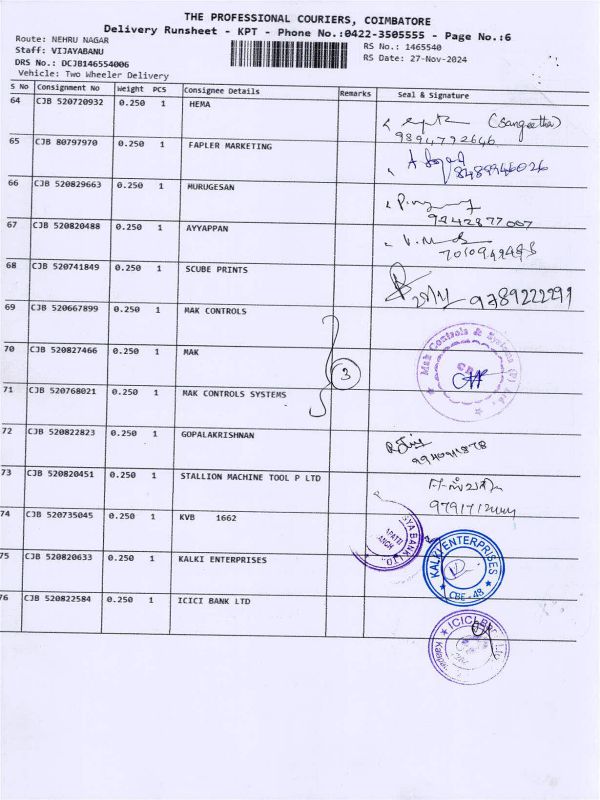 THE PROFESSIONAL COURIERS, COIMBATORE
Delivery Runsheet - KPT - Phone No.:0422-3505555 - Page No.:6
Route: NEHRU NAGAR
RS No.: 1465540
Staff: VIJAYABANU
RS Date: 27-Nov-2024
DRS No.: DCJB146554006
Vehicle: Two Wheeler Delivery
S No Consignment No Weight PCS Consignee Details Remarks Seal & Signature
64 CJB 520720932 0.250 1 HEMA
(Sangeetha)
9894792646
65 CJB 80797970 0.250 1 FAPLER MARKETING
8489946026
66 CJB 520829663 0.250 1 MURUGESAN
9442877007
67 CJB 520820488 0.250 1 AYYAPPAN
68 CJB 520741849 0.250 1 SCUBE PRINTS
9789222291
69 CJB 520667899 0.250 1 MAK CONTROLS
70 CJB 520827466 0.250 1 MAK
3
Mak Controls & Systems (P) Ltd.
71 CJB 520768021 0.250 1 MAK CONTROLS SYSTEMS
72 CJB 520822823 0.250 1 GOPALAKRISHNAN
73 CJB 520820451 0.250 1 STALLION MACHINE TOOL P LTD
74 CJB 520735045 0.250 1 KVB 1662
75 CJB 520820633 0.250 1 KALKI ENTERPRISES
KALKI ENTERPRISES
CBE - 48
76 CJB 520822584 0.250 1 ICICI BANK LTD
ICICI Bank Ltd